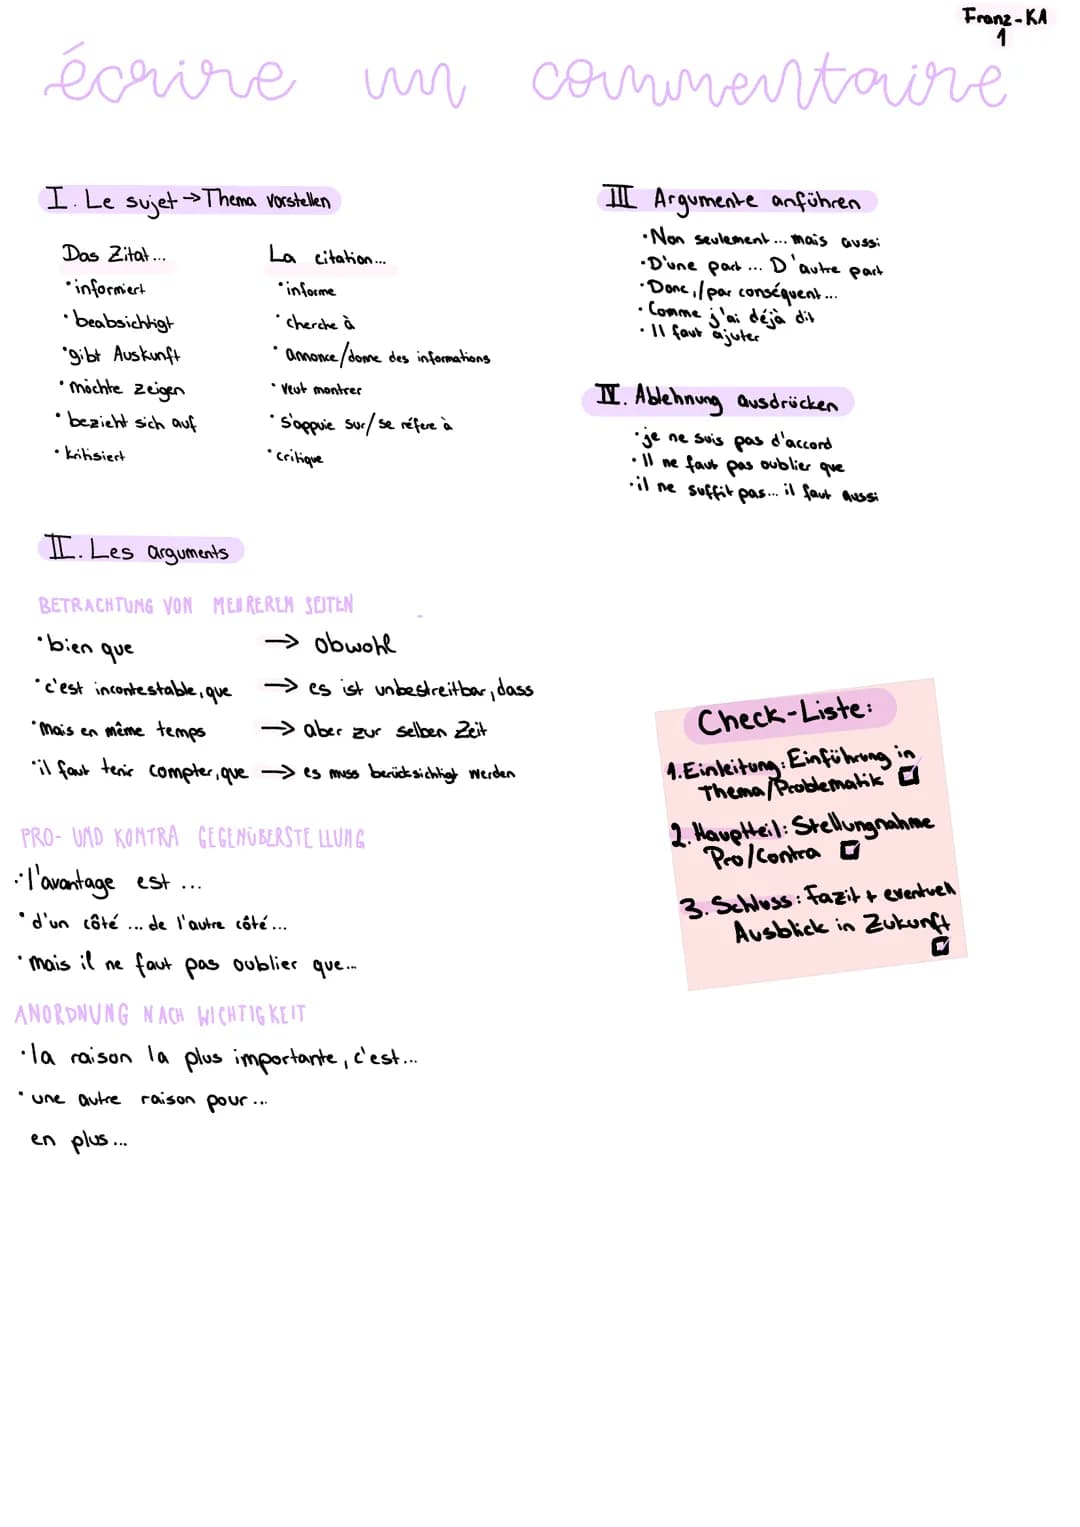 Franz-KA
1
écrire un commentaire
I. Le sujet → Thema vorstellen
Das Zitat...
• informiert
• beabsichtigt
• gibt Auskunft
• möchte zeigen
• bezieht sich auf
• kritisiert
La citation...
• informe
• cherche à
• annonce/donne des informations
• veut montrer
• s'appuie sur/se réfere à
• critique
II. Les arguments
BETRACHTUNG VON MEHREREN SEITEN
• bien que → obwohl
• c'est incontestable, que → es ist unbestreitbar, dass
• Mais en même temps → aber zur selben Zeit
• il faut tenir compter, que → es muss berücksichtigt werden
PRO- UND KONTRA GEGENÜBERSTELLUNG
• l'avantage est ...
• d'un côté ... de l'autre côté...
• mais il ne faut pas oublier que...
ANORDNUNG NACH WICHTIGKEIT
• la raison la plus importante, c'est...
• une autre raison pour...
en plus...
III Argumente anführen
• Non seulement ... mais aussi
• D'une part ... D'autre part
• Donc,/par conséquent...
• Comme j'ai déjà dit
• Il faut ajuter
IV. Ablehnung ausdrücken
• je ne suis pas d'accord
• Il ne faut pas oublier que
• il ne suffit pas... il faut aussi
Check-Liste:
1. Einleitung: Einführung in
Thema/Problematik
2. Hauptteil: Stellungnahme
Pro/Contra
3. Schluss: Fazit + eventuell
Ausblick in Zukunft